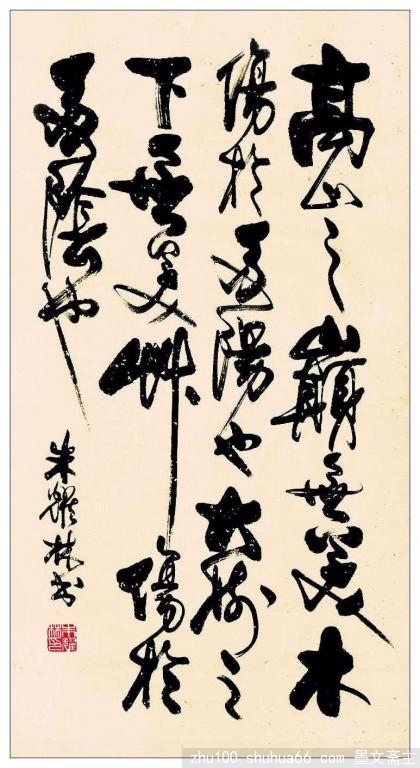 高山之巔無美木
傷於多陽也大樹之
下無美艸傷於
多陰也
朱耀林書
zhu100.shuhua66.com 墨文斋主